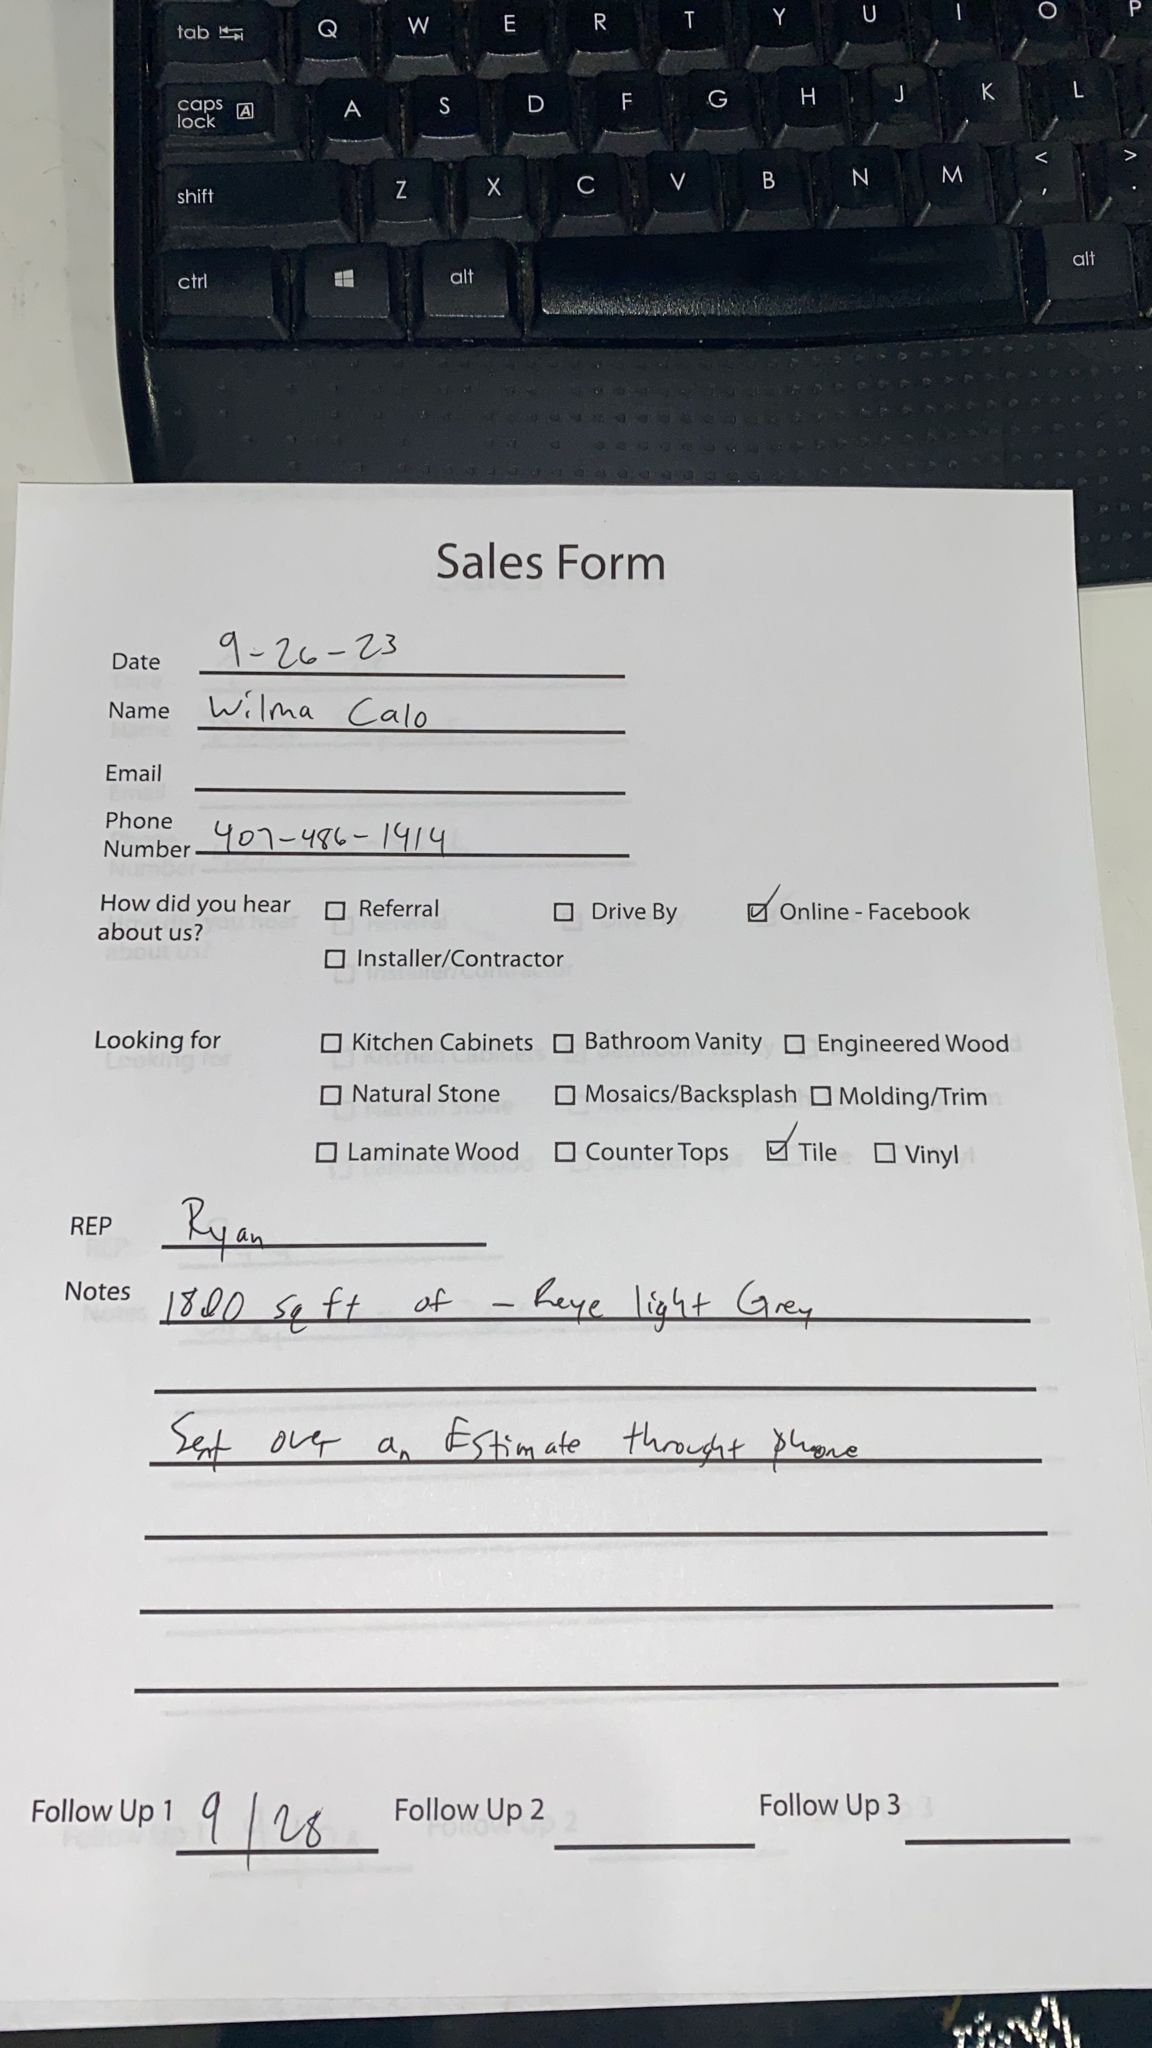 tab Q W E R T Y U I O P
caps lock A A S D F G H J K L
shift Z X C V B N M < , > .
ctrl alt alt
Sales Form
Date 9-26-23
Name Wilma Calo
Email
Phone Number 407-486-1914
How did you hear about us? Referral Drive By Online - Facebook
Installer/Contractor
Looking for Kitchen Cabinets Bathroom Vanity Engineered Wood
Natural Stone Mosaics/Backsplash Molding/Trim
Laminate Wood Counter Tops Tile Vinyl
REP Ryan
Notes 1800 sq ft of - light Grey
Sent over an Estimate throught phone
Follow Up 1 9/28 Follow Up 2 Follow Up 3